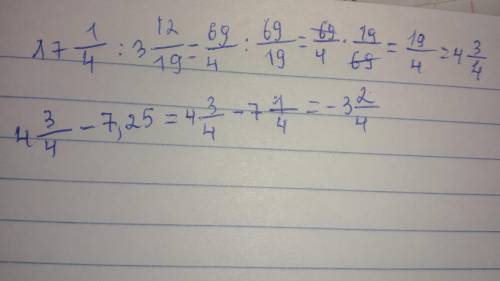 17 1/4 : 3 12/19 = 69/4 : 69/19 = 69/4 · 19/69 = 19/4 = 4 3/4
4 3/4 - 7,25 = 4 3/4 - 7 1/4 = -3 2/4